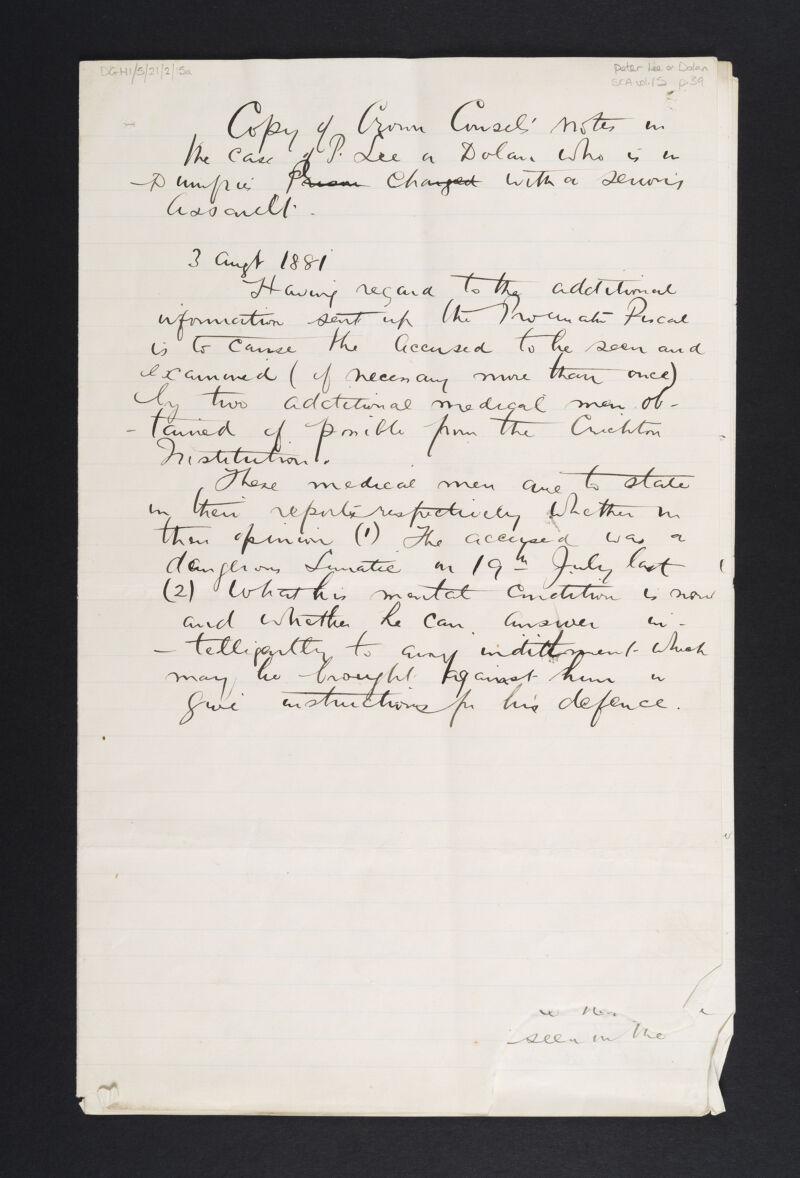 DGH1/5/21/2/15a
Peter Lee or Dolan
SCA vol.15 p.39
Copy of Crown Counsels' Notes in
the case of P. Lee or Dolan who is in
Dumfries Prison Charged with a serious
Assault.
3 Augt 1881
Having regard to the additional
information sent up the Procurator Fiscal
is to cause the Accused to be seen and
examined (if necessary more than once)
by two additional medical men ob-
-tained if possible from the Crichton
Institution.
These medical men are to state
in their reports respectively whether in
their opinion (1) The accused was a
dangerous Lunatic on 19th July last
(2) What his mental condition is now
and whether he can answer in-
-telligently to any indictment which
may be brought against him or
give instructions for his defence.
seen in the